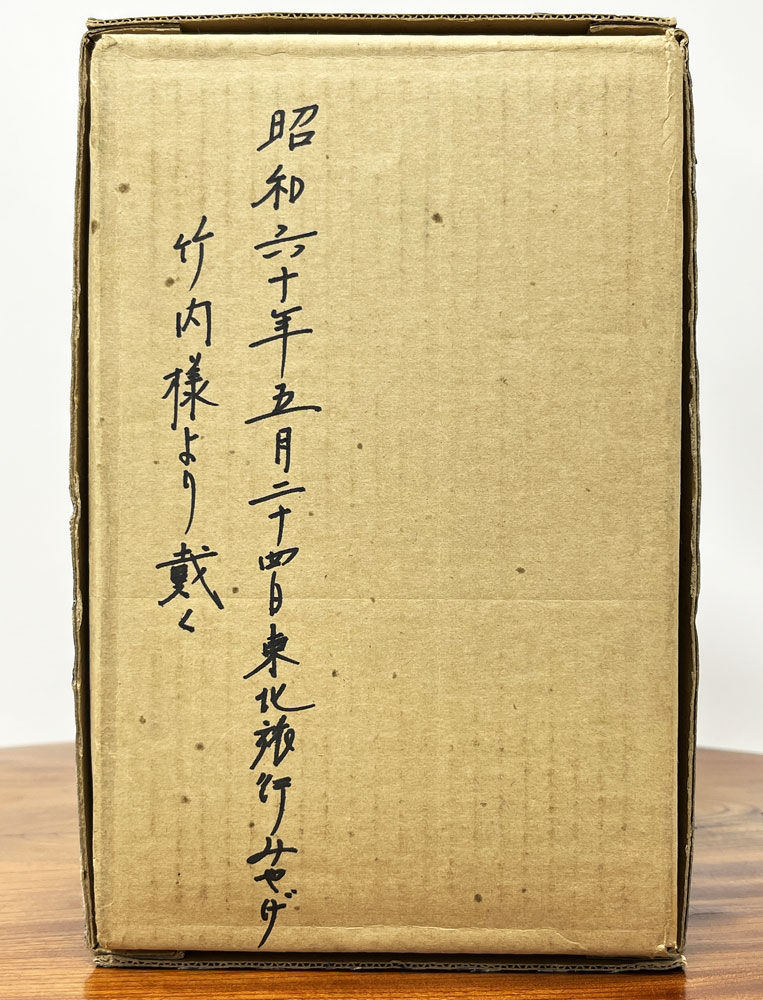 昭和六十年五月二十四日東北旅行みやげ
竹内様より戴く